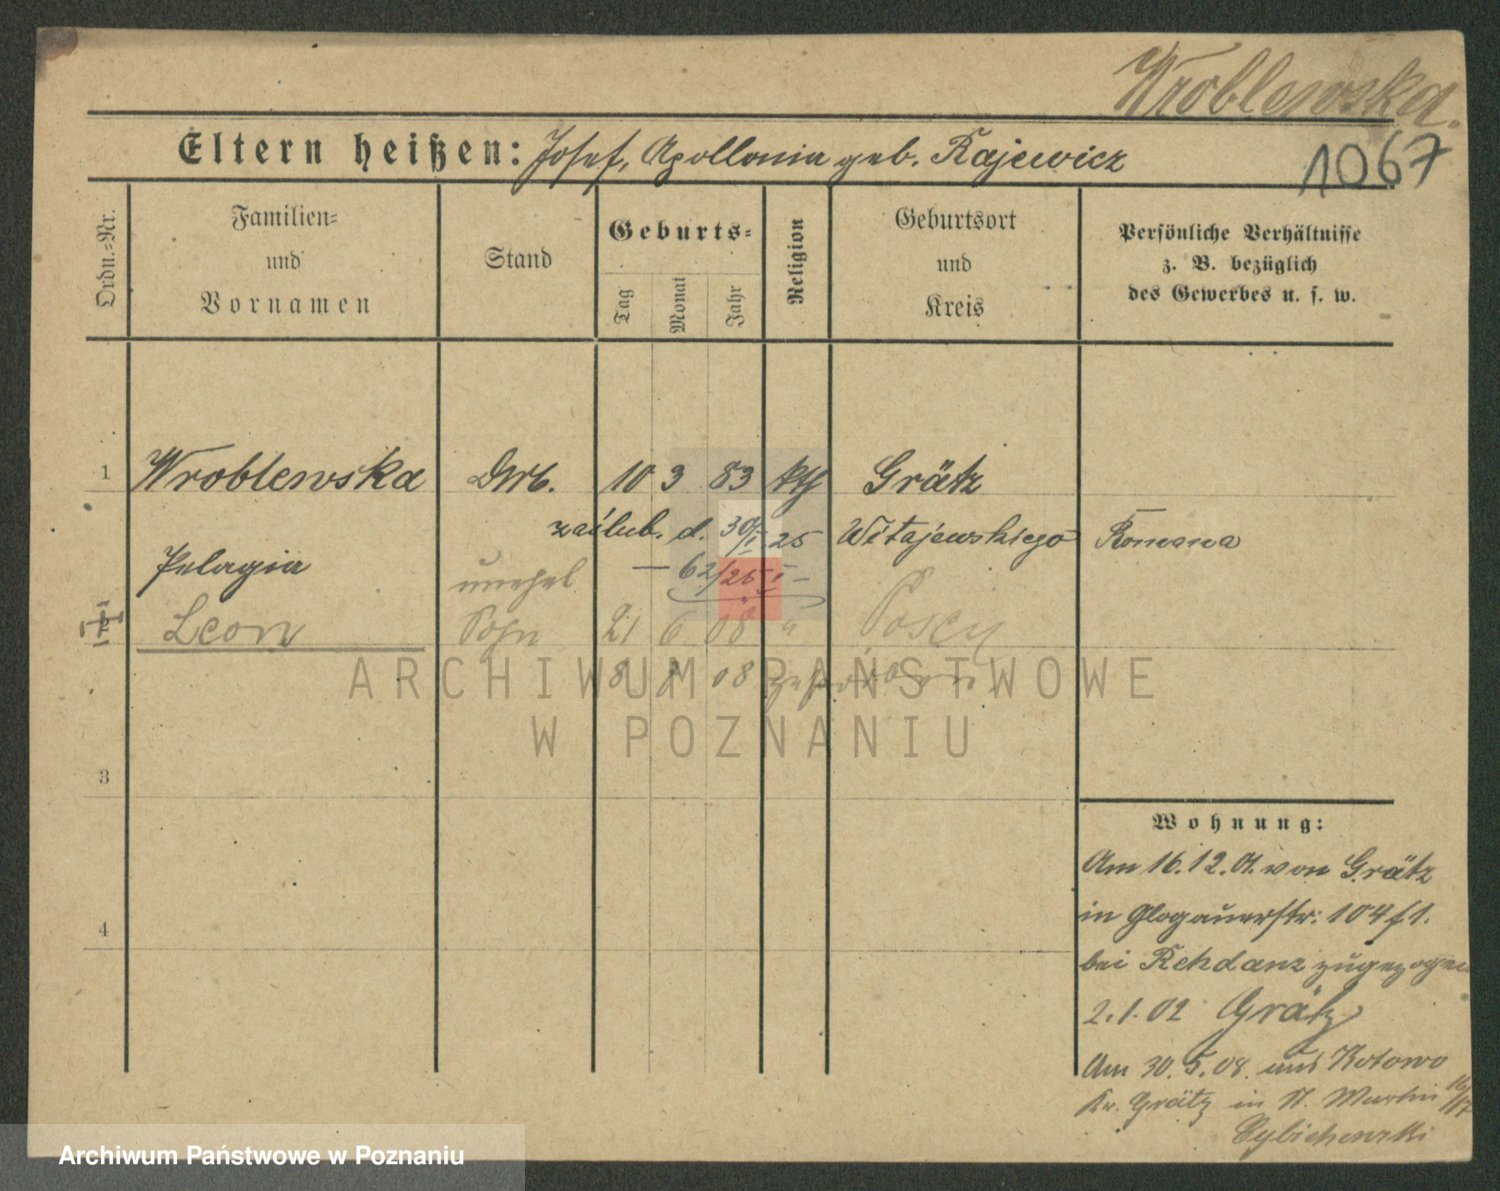 Wroblewska.
1067
Eltern heißen: Josef, Apollonia geb. Rajewicz
Ordn.-Nr.
Familien-
und
Vornamen
Stand
Geburts-
Tag
Monat
Jahr
Religion
Geburtsort
und
Kreis
Persönliche Verhältnisse
z. B. bezüglich
des Gewerbes u. s. w.
1 Wroblewska 10 3 83 kth Grätz
zaślub. d. 30/I 25 Witajewskiego Romana
Pelagia
unehel
— 62/25 —
2 Leon Sohn 21 6 08 " Posen
8 8 08 gestorben
3
4
Wohnung:
Am 16.12.01. von Grätz
in Glogauerstr: 104 f 1.
bei Rehdanz zugezogen
2.1.02 Grätz
Am 30.5.08. aus Kotowo
Kr. Grätz in St. Martin 16/17
Cybichowski
ARCHIWUM PAŃSTWOWE
W POZNANIU
Archiwum Państwowe w Poznaniu